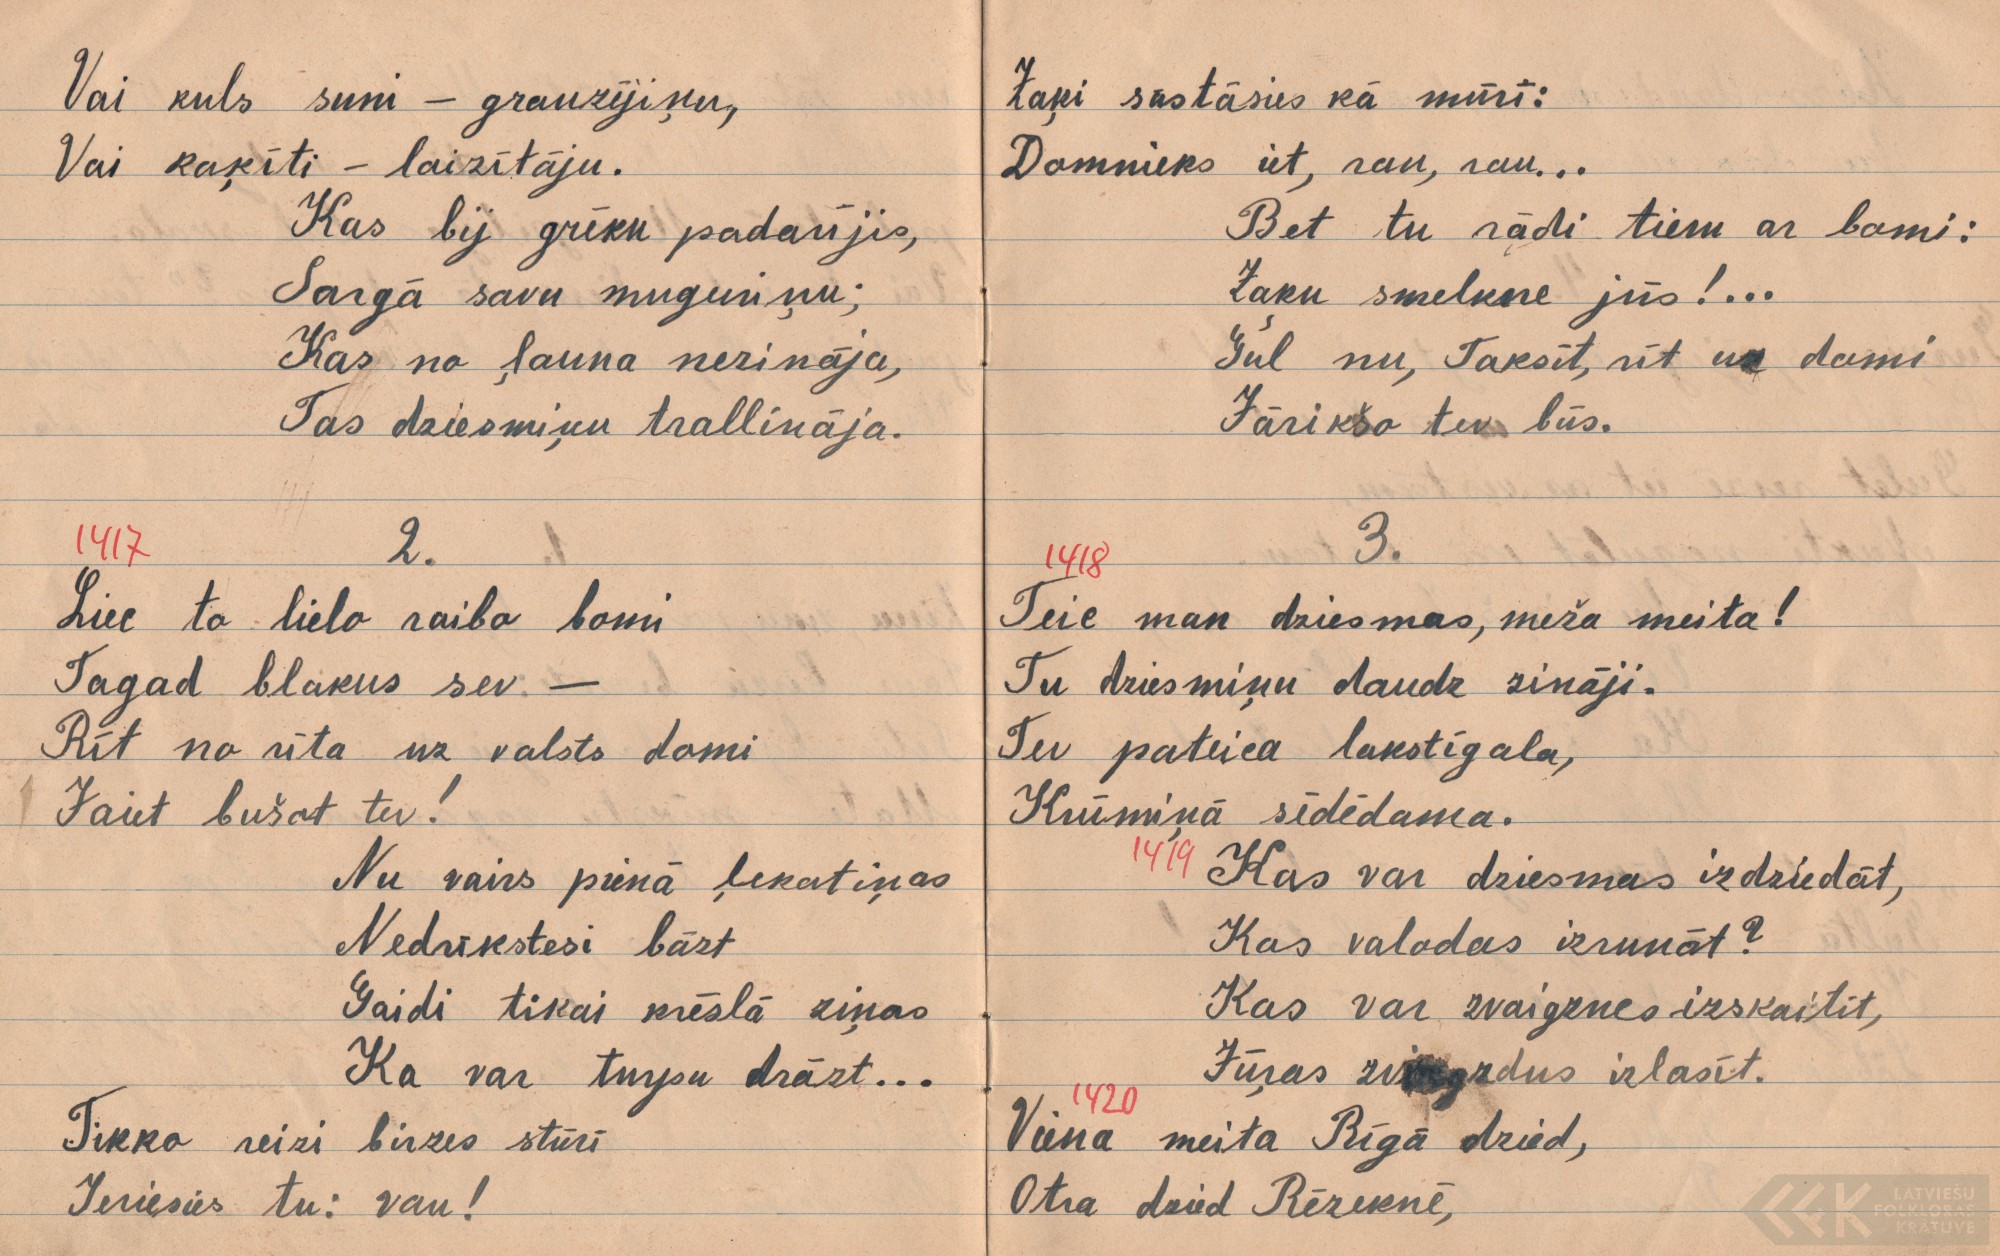 Vai kuls suni – grauzējiņu,
Vai kaķīti – laizītāju.
Kas bij grēku padarījis,
Sargā savu muguriņu;
Kas no ļauna nezināja,
Tas dziesmiņu trallināja.
1417
2.
Liec to lielo raibo bomi
Tagad blakus sev –
Rīt no rīta uz valsts domi
Jāiet bušot tev!
Nu vairs pienā ļekatiņas
Nedrīkstesi bāzt
Gaidi tikai krēslā ziņas
Ka var turpu drāzt...
Tikko reizi birzes stūrī
Ieriesies tu: vau!
Zaķi sastāsies kā mūrī:
Domnieks iet, rau, rau...
Bet tu rādi tiem ar bomi:
Zaķu smelkne jūs!...
Gul nu, Taksīt, rīt uz domi
Jārikšo tev būs.
3.
1418
Teic man dziesmas, meža meita!
Tu dziesmiņu daudz zināji.
Tev pateica lakstīgala,
Krūmiņā sēdēdama.
1419
Kas var dziesmas izdziedāt,
Kas valodas izrunāt?
Kas var zvaigznes izskaitīt,
Jūŗas zvirgzdus izlasīt.
1420
Viena meita Rīgā dzied,
Otra dzied Rēzeknē,
LATVIEŠU
FOLKLORAS
KRĀTUVE